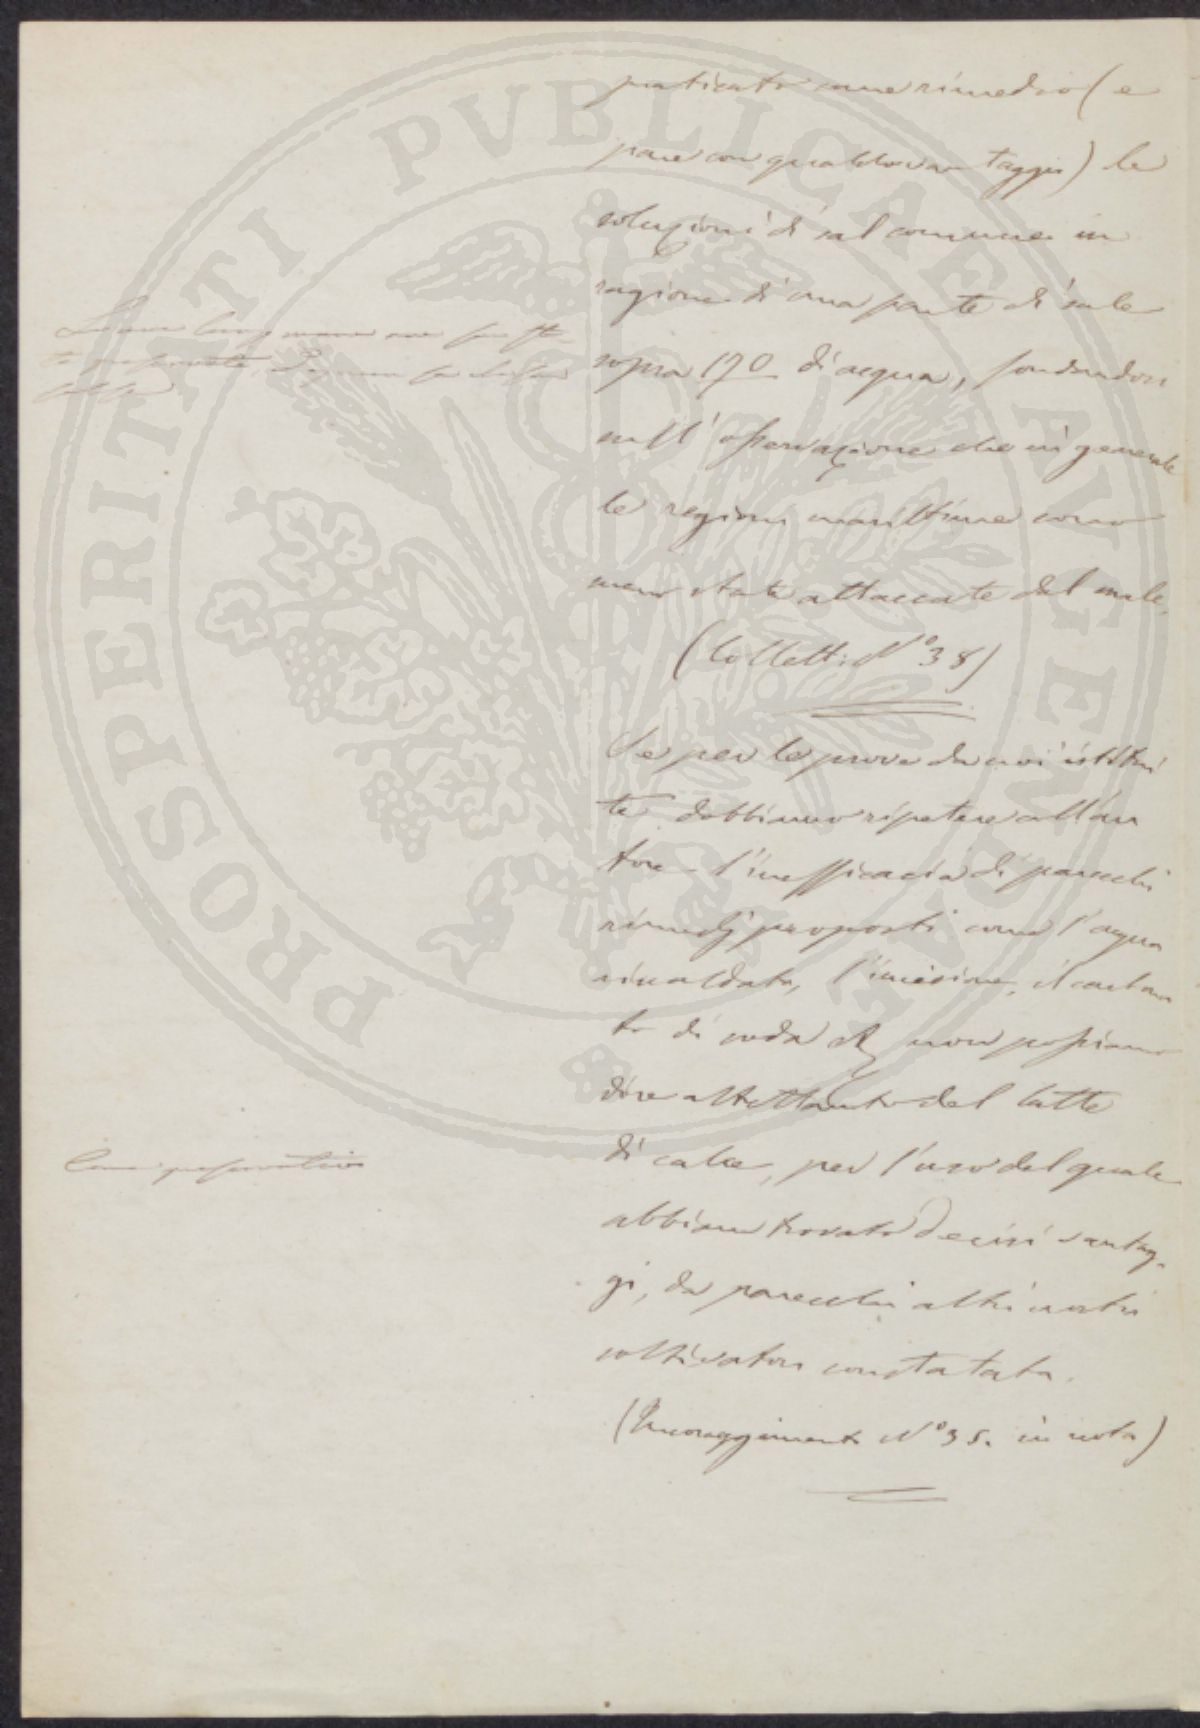 praticato come rimedio (e
pare con qualche vantaggio) le
soluzioni di sal comune in
ragione di una parte di sale
sopra 170 di acqua, fondandosi
sull'osservazione che in generale
le regioni marittime sono
meno state attaccate dal male.
(Collett: N° 38)
Se per le prove da noi istitui
te dobbiamo ripetere coll'au
tore l'inefficacia di parecchi
rimedj proposti come l'acqua
riscaldata, l'incisione, il carbona
to di soda non possiamo
dire altrettanto del latte
Come preservativo
di calce, per l'uso del quale
abbiam trovato decisi vantag-
gi, da parecchi altri nostri
coltivatori constatata.
(Incoraggiamento N° 35. in nota)
PROSPERITATI PVBLICAE AVGENDAE